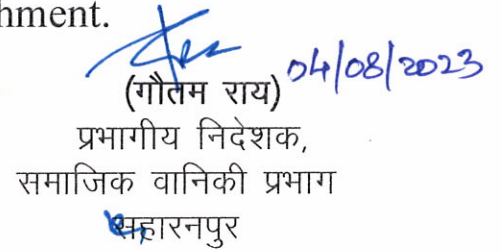 hment.
04/08/2023
(गौतम राय)
प्रभागीय निदेशक,
समाजिक वानिकी प्रभाग
सहारनपुर